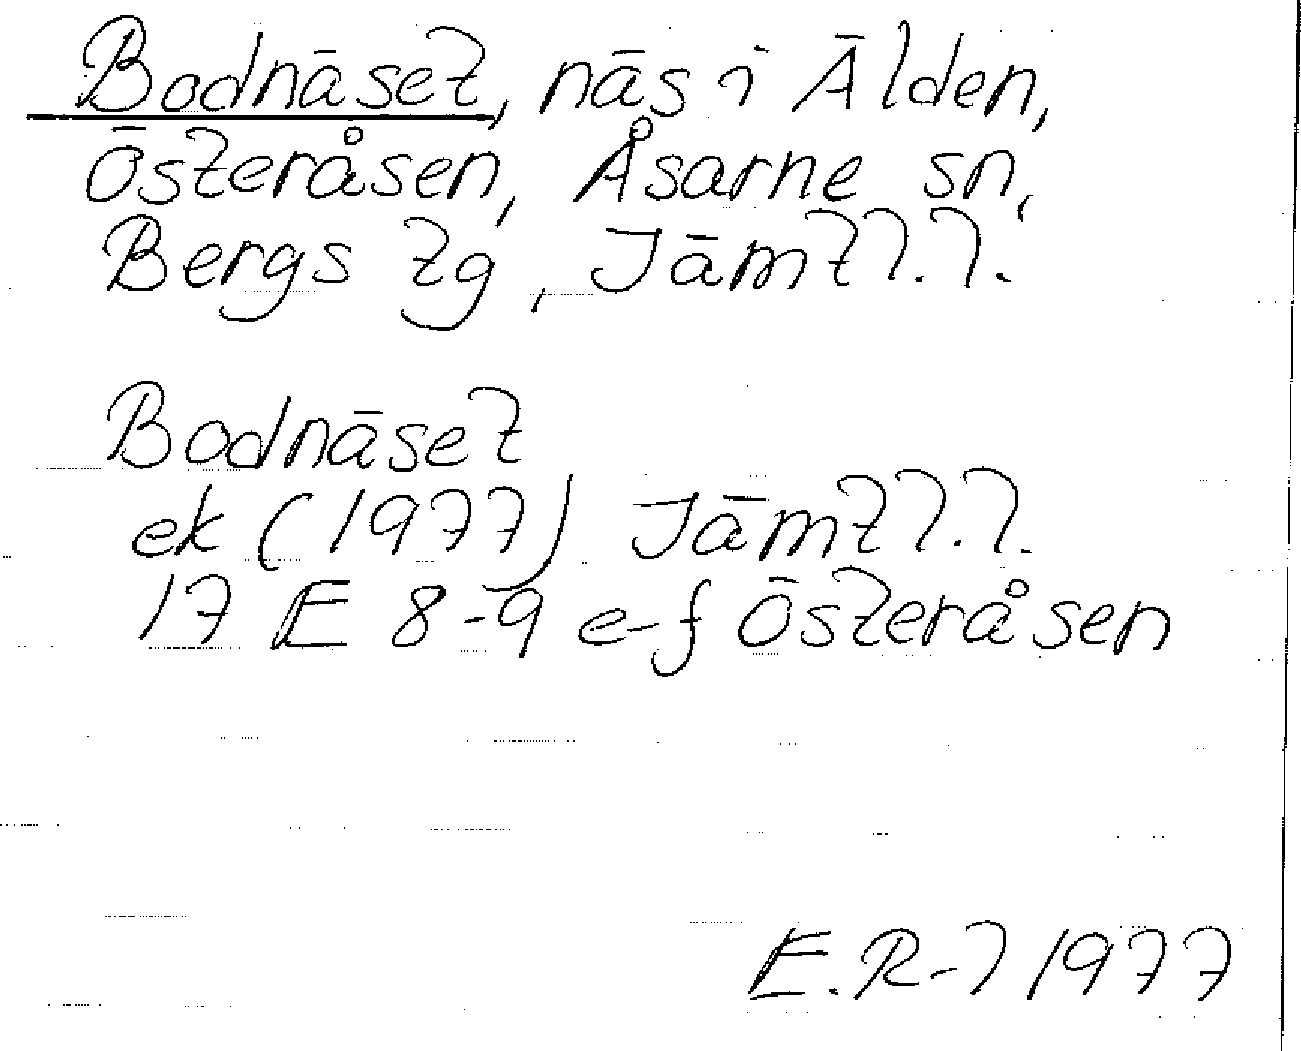 Bodnäset, näs i Älden,
Österåsen, Åsarne sn,
Bergs tg, Jämtl.l.
Bodnäset
ek (1977) Jämtl.l.
17 E 8-9 e-f Österåsen
E.R-l 1977